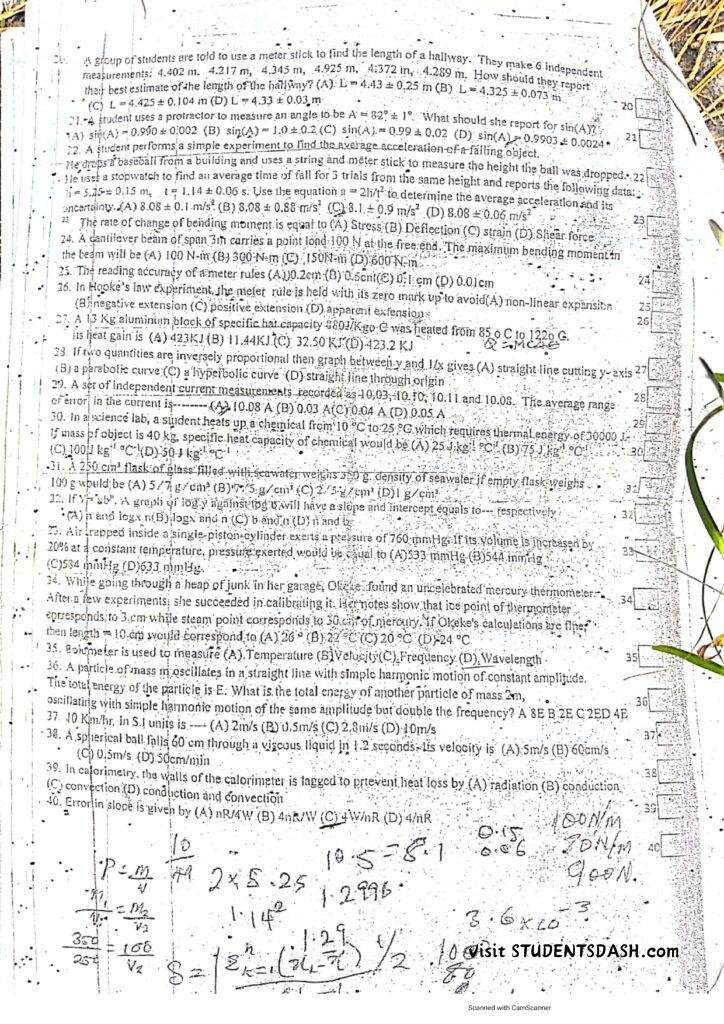 20. A group of students are told to use a meter stick to find the length of a hallway. They make 6 independent
measurements: 4.402 m. 4.217 m, 4.345 m, 4.925 m, 4.372 m, 4.289 m. How should they report
their best estimate of the length of the hallway? (A) L = 4.43 ± 0.25 m (B) L = 4.325 ± 0.073 m
(C) L = 4.425 ± 0.104 m (D) L = 4.33 ± 0.03 m
20
21. A student uses a protractor to measure an angle to be A = 82° ± 1°. What should she report for sin(A)?
(A) sin(A) = 0.990 ± 0.002 (B) sin(A) = 1.0 ± 0.2 (C) sin(A) = 0.99 ± 0.02 (D) sin(A) = 0.9903 ± 0.0024
21
22. A student performs a simple experiment to find the average acceleration of a falling object.
He drops a baseball from a building and uses a string and meter stick to measure the height the ball was dropped.
22
He uses a stopwatch to find an average time of fall for 3 trials from the same height and reports the following data:
h = 5.25 ± 0.15 m, t = 1.14 ± 0.06 s. Use the equation a = 2h/t² to determine the average acceleration and its
uncertainty. (A) 8.08 ± 0.1 m/s² (B) 8.08 ± 0.88 m/s² (C) 8.1 ± 0.9 m/s² (D) 8.08 ± 0.06 m/s²
23
The rate of change of bending moment is equal to (A) Stress (B) Deflection (C) strain (D) Shear force
24. A cantilever beam of span 3m carries a point load 100 N at the free end. The maximum bending moment in
the beam will be (A) 100 N-m (B) 300 N-m (C) 150N-m (D) 600 N-m
24
25. The reading accuracy of a meter rules (A) 0.2cm (B) 0.5cm (C) 0.1 cm (D) 0.01cm
26. In Hooke's law experiment, the meter rule is held with its zero mark up to avoid(A) non-linear expansion
25
(B) negative extension (C) positive extension (D) apparent extension
26
27. A 13 Kg aluminium block of specific hat capacity 880J/Kgo C was heated from 85 o C to 122o C.
its heat gain is (A) 423KJ (B) 11.44KJ (C) 32.50 KJ (D) 423.2 KJ
28. If two quantities are inversely proportional then graph between y and 1/x gives (A) straight line cutting y-axis
27
(B) a parabolic curve (C) a hyperbolic curve (D) straight line through origin
28
29. A set of independent current measurements recorded as 10.03, 10.10, 10.11 and 10.08. The average range
of error in the current is-------- (A) 10.08 A (B) 0.03 A(C) 0.04 A (D) 0.05 A
29
30. In a science lab, a student heats up a chemical from 10 °C to 25 °C which requires thermal energy of 30000 J.
If mass of object is 40 kg, specific heat capacity of chemical would be (A) 25 J kg⁻¹ °C⁻¹ (B) 75 J kg⁻¹ °C⁻¹
(C) 100 J kg⁻¹ °C⁻¹ (D) 50 J kg⁻¹ °C⁻¹
30
31. A 250 cm³ flask of glass filled with seawater weighs 350 g. density of seawater if empty flask weighs
100 g would be (A) 5/7 g/cm³ (B) 7/5 g/cm³ (C) 2/5 g/cm³ (D)1 g/cm³
32. A graph of log y against log b will have a slope and intercept equals to--- respectively
32
(A) n and logx n(B) logx and n (C) b and n (D) n and b
33. Air trapped inside a single-piston-cylinder exerts a pressure of 760 mmHg. If its volume is increased by
20% at a constant temperature, pressure exerted would be equal to (A)533 mmHg (B)544 mmHg
33
(C)534 mmHg (D)633 mmHg.
34. While going through a heap of junk in her garage, Okeke found an uncelebrated mercury thermometer.
After a few experiments, she succeeded in calibrating it. Her notes show that ice point of thermometer
34
corresponds to 3 cm while steam point corresponds to 30 cm of mercury. If Okeke's calculations are fine,
then length = 10 cm would correspond to (A) 26 ° (B) 22 °C (C) 20 °C (D) 24 °C
35. Bolometer is used to measure (A) Temperature (B)Velocity(C) Frequency (D) Wavelength
35
36. A particle of mass m oscillates in a straight line with simple harmonic motion of constant amplitude.
The total energy of the particle is E. What is the total energy of another particle of mass 2m,
oscillating with simple harmonic motion of the same amplitude but double the frequency? A 8E B 2E C 2ED 4E
36
37 10 Km/hr, in S.I units is ---- (A) 2m/s (B) 0.5m/s (C) 2.8m/s (D) 10m/s
38. A spherical ball falls 60 cm through a viscous liquid in 1.2 seconds. Its velocity is (A) 5m/s (B) 60cm/s
37
(C) 0.5m/s (D) 50cm/min
38
39. In calorimetry, the walls of the calorimeter is lagged to prtevent heat loss by (A) radiation (B) conduction
(C) convection (D) conduction and convection
39
40. Error in slope is given by (A) nR/4W (B) 4nR/W (C) 4W/nR (D) 4/nR
40
P = m/v
2 x 5.25
1.14²
10.5 = 8.1
1.2996
1.29
0.15
0.06
100N/m
900N.
m₁/v₁ = m₂/v₂
350/250 = 100/v₂
3.6 x 10⁻³
Visit STUDENTSDASH.com
Scanned with CamScanner